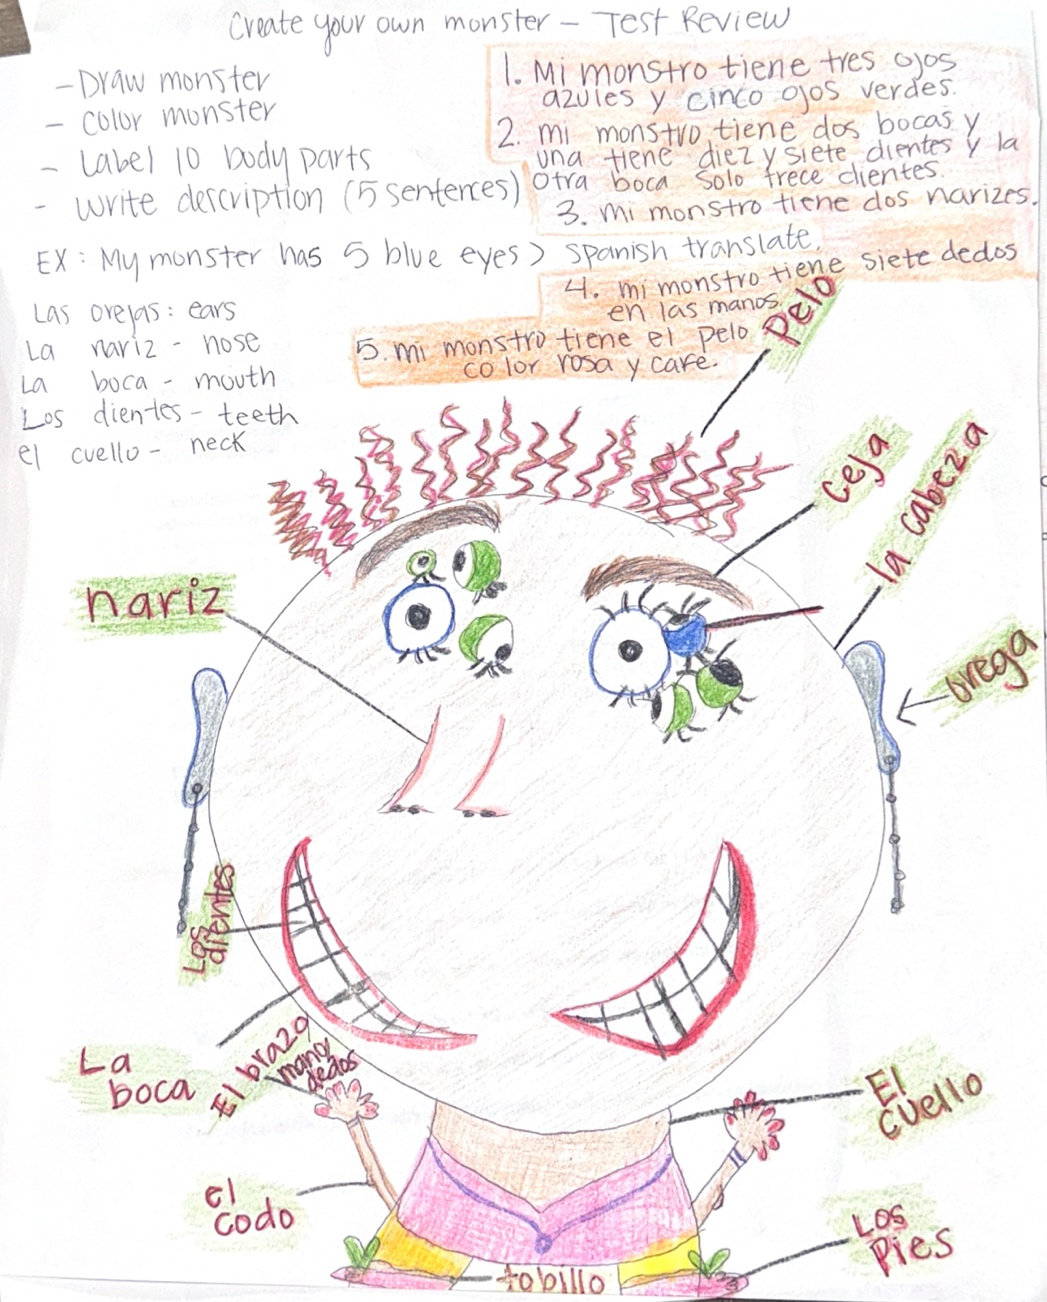 Create your own monster - Test Review
- Draw monster
- color monster
- Label 10 body parts
- write description (5 sentences)
EX: My monster has 5 blue eyes > spanish translate.
Las orejas: ears
La nariz - nose
La boca - mouth
Los dientes - teeth
el cuello - neck
1. Mi monstro tiene tres ojos
azules y cinco ojos verdes.
2. mi monstro tiene dos bocas y
una tiene diez y siete dientes y la
otra boca solo trece dientes.
3. mi monstro tiene dos narizes.
4. mi monstro tiene siete dedos
en las manos.
5. mi monstro tiene el pelo
color rosa y cafe.
Pelo
ceja
la cabeza
nariz
orega
Los
dientes
La
boca
El brazo
mano
dedos
El
cuello
el
codo
Los
Pies
tobillo